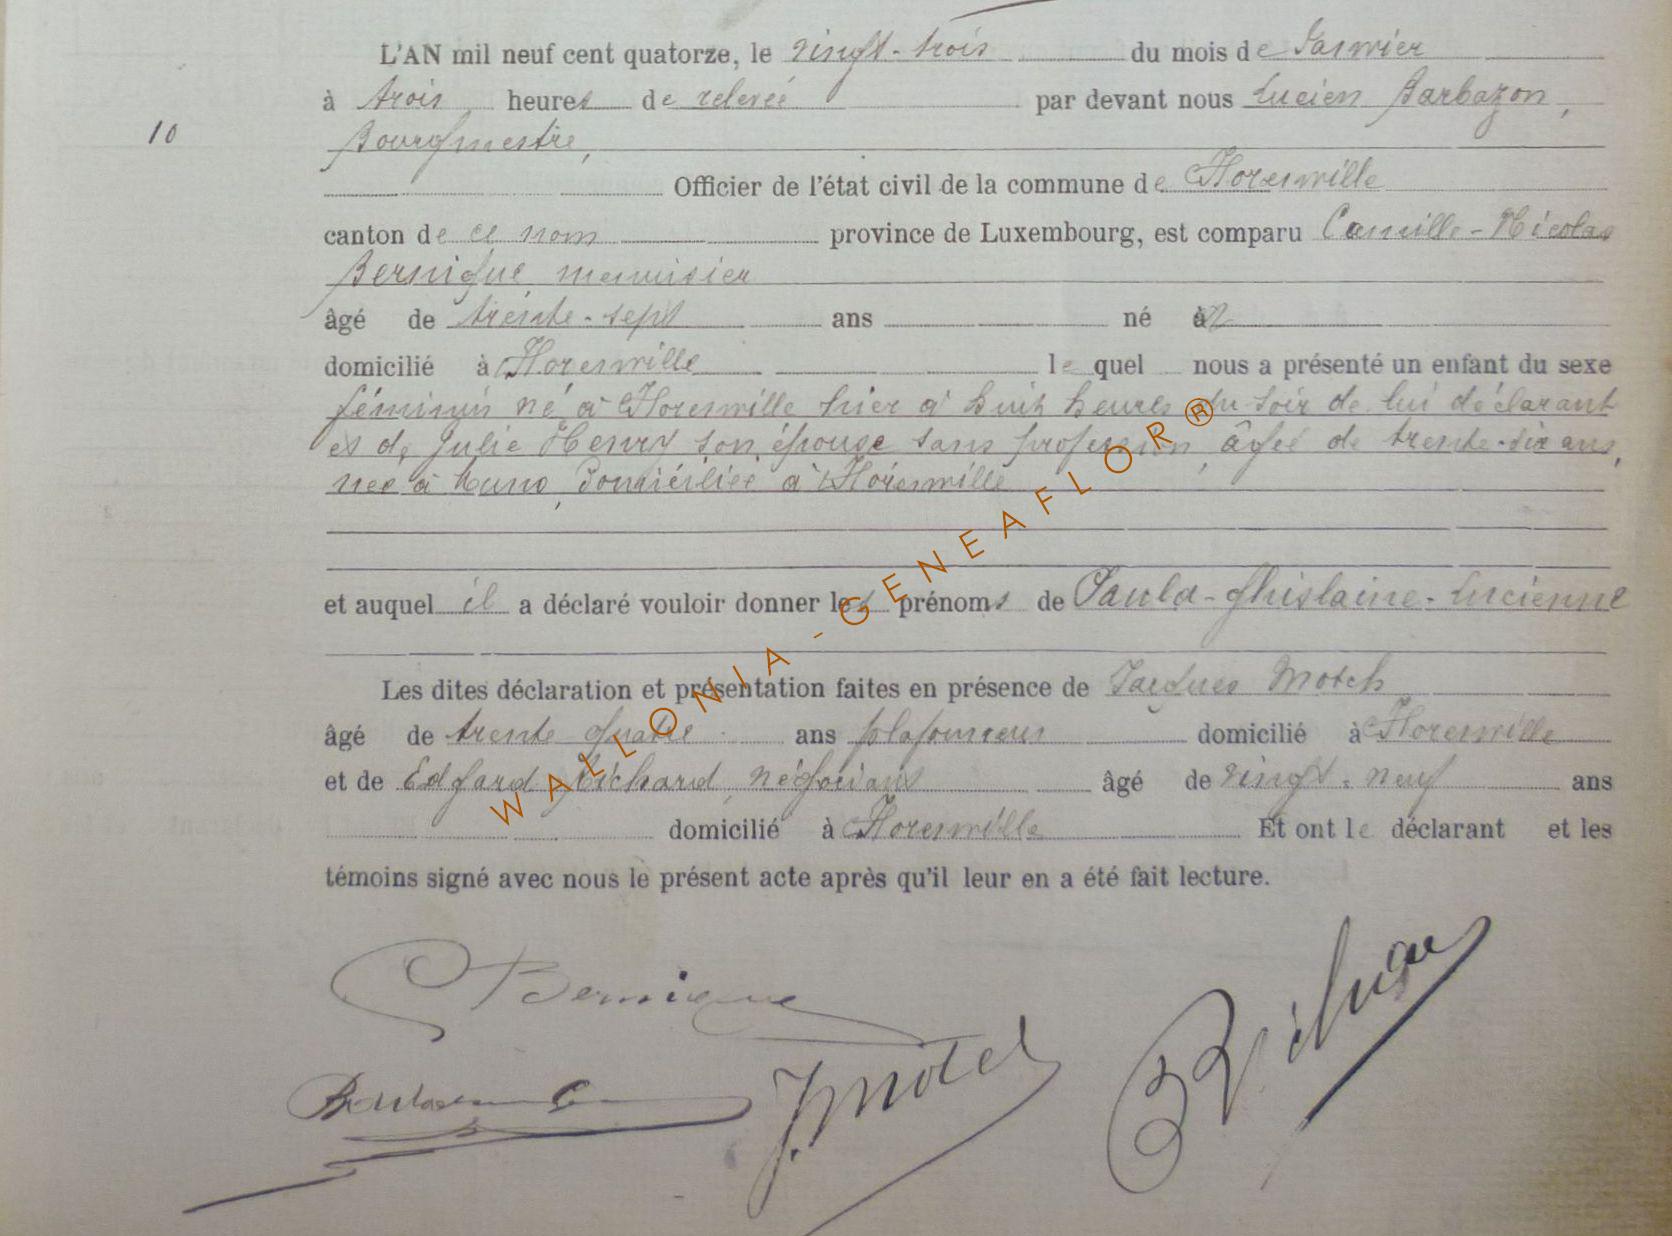 L'AN mil neuf cent quatorze, le vingt-trois du mois de Janvier
à trois heures de relevée par devant nous Lucien Barbazon,
10
Bourgmestre,
Officier de l'état civil de la commune de Florenville
canton de ce nom province de Luxembourg, est comparu Camille-Nicolas
Bernique, menuisier
âgé de trente-sept ans né à
domicilié à Florenville lequel nous a présenté un enfant du sexe
féminin né à Florenville hier à huit heures du soir de lui déclarant
et de Julie Henry son épouse sans profession, âgée de trente-six ans,
née à Muno, domiciliée à Florenville
et auquel il a déclaré vouloir donner les prénoms de Paula-Ghislaine-Lucienne
Les dites déclaration et présentation faites en présence de Jacques Motch
âgé de trente quatre ans plafonneur domicilié à Florenville
et de Edgard Richard, négociant âgé de vingt-neuf ans
domicilié à Florenville Et ont le déclarant et les
témoins signé avec nous le présent acte après qu'il leur en a été fait lecture.
WALLONIA-GENEAFLOR®
C Bernique
J. Motch